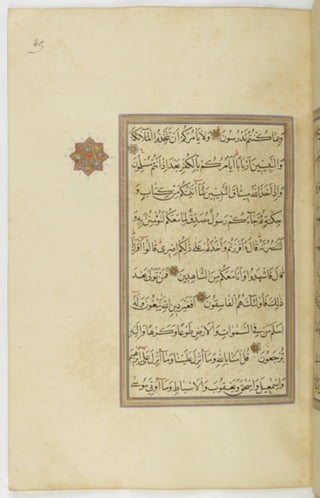 65
وبما كنتم تدرسون ولا يامركم ان تتخذوا الملائكة
والنبيين اربابا ايامركم بالكفر بعد اذ انتم مسلمون
واذ اخذ الله ميثاق النبيين لما آتيتكم من كتاب و
حكمة ثم جآءكم رسول مصدق لما معكم لتؤمنن به و
لتنصرنه قال ءاقررتم واخذتم على ذلكم اصرى قالوا اقررنا
قال فاشهدوا وانا معكم من الشاهدين فمن تولى بعد
ذلك فاولئك هم الفاسقون افغير دين الله يبغون وله
اسلم من فى السموات والارض طوعا وكرها واليه
يرجعون قل امنا بالله وما انزل علينا وما انزل على ابرهيم
واسمعيل واسحق ويعقوب والاسباط وما اوتى موسى